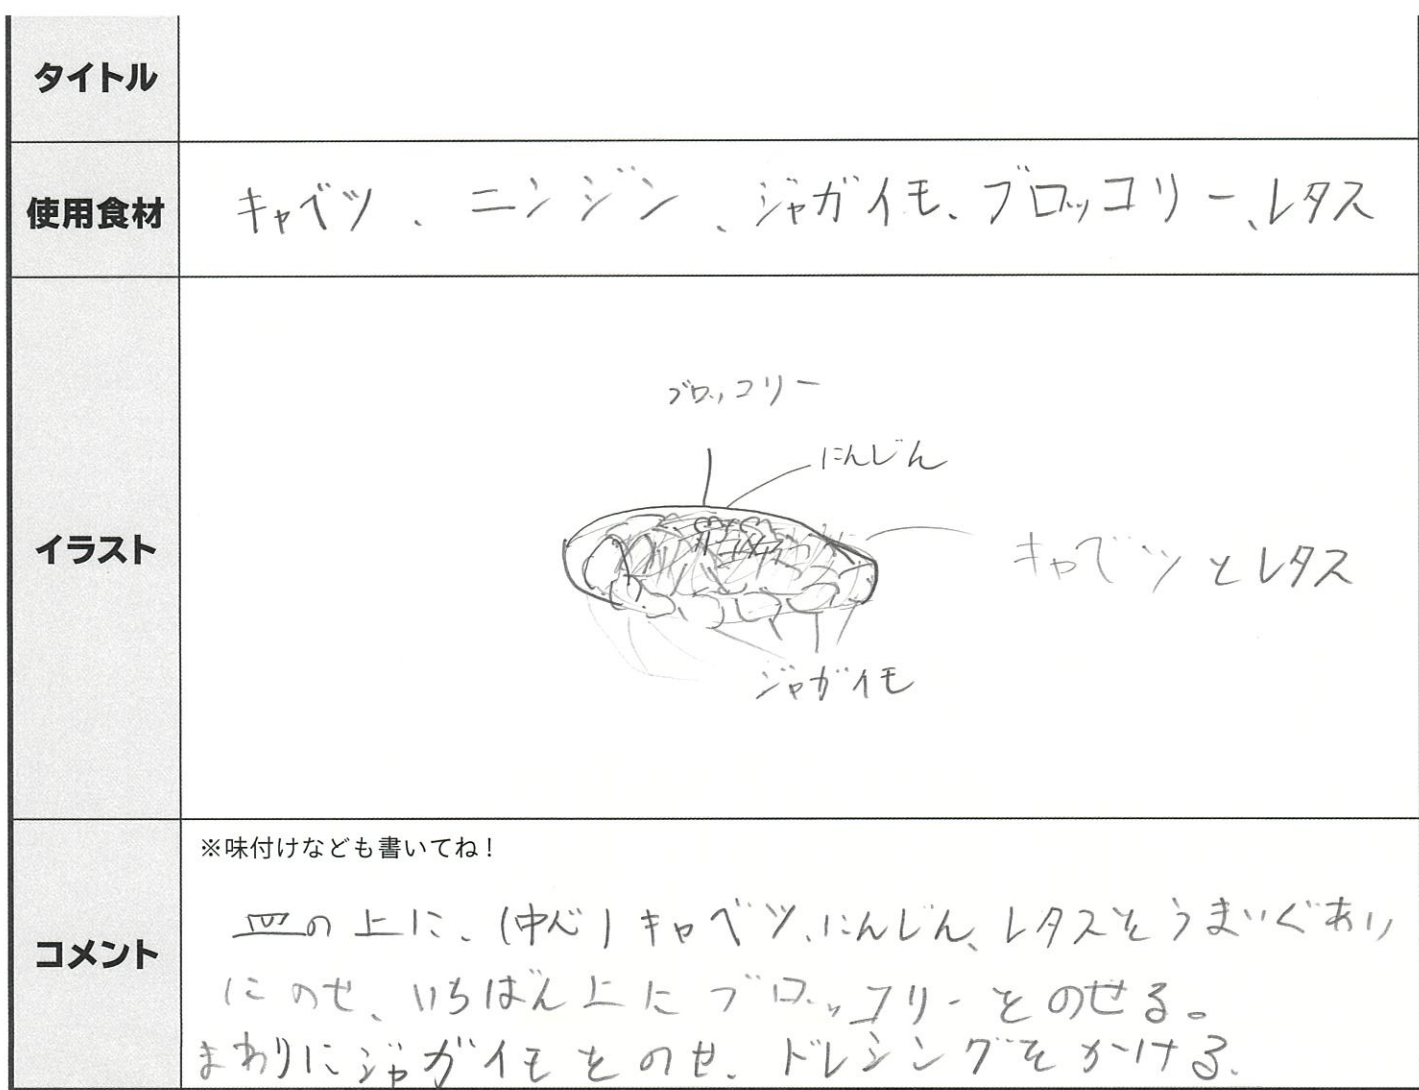 タイトル
使用食材
キャベツ、ニンジン、ジャガイモ、ブロッコリー、レタス
イラスト
ブロッコリー
にんじん
キャベツとレタス
ジャガイモ
コメント
※味付けなども書いてね！
皿の上に、(中心)キャベツ、にんじん、レタスをうまいぐあい
にのせ、いちばん上にブロッコリーをのせる。
まわりにジャガイモをのせ、ドレシングをかける。